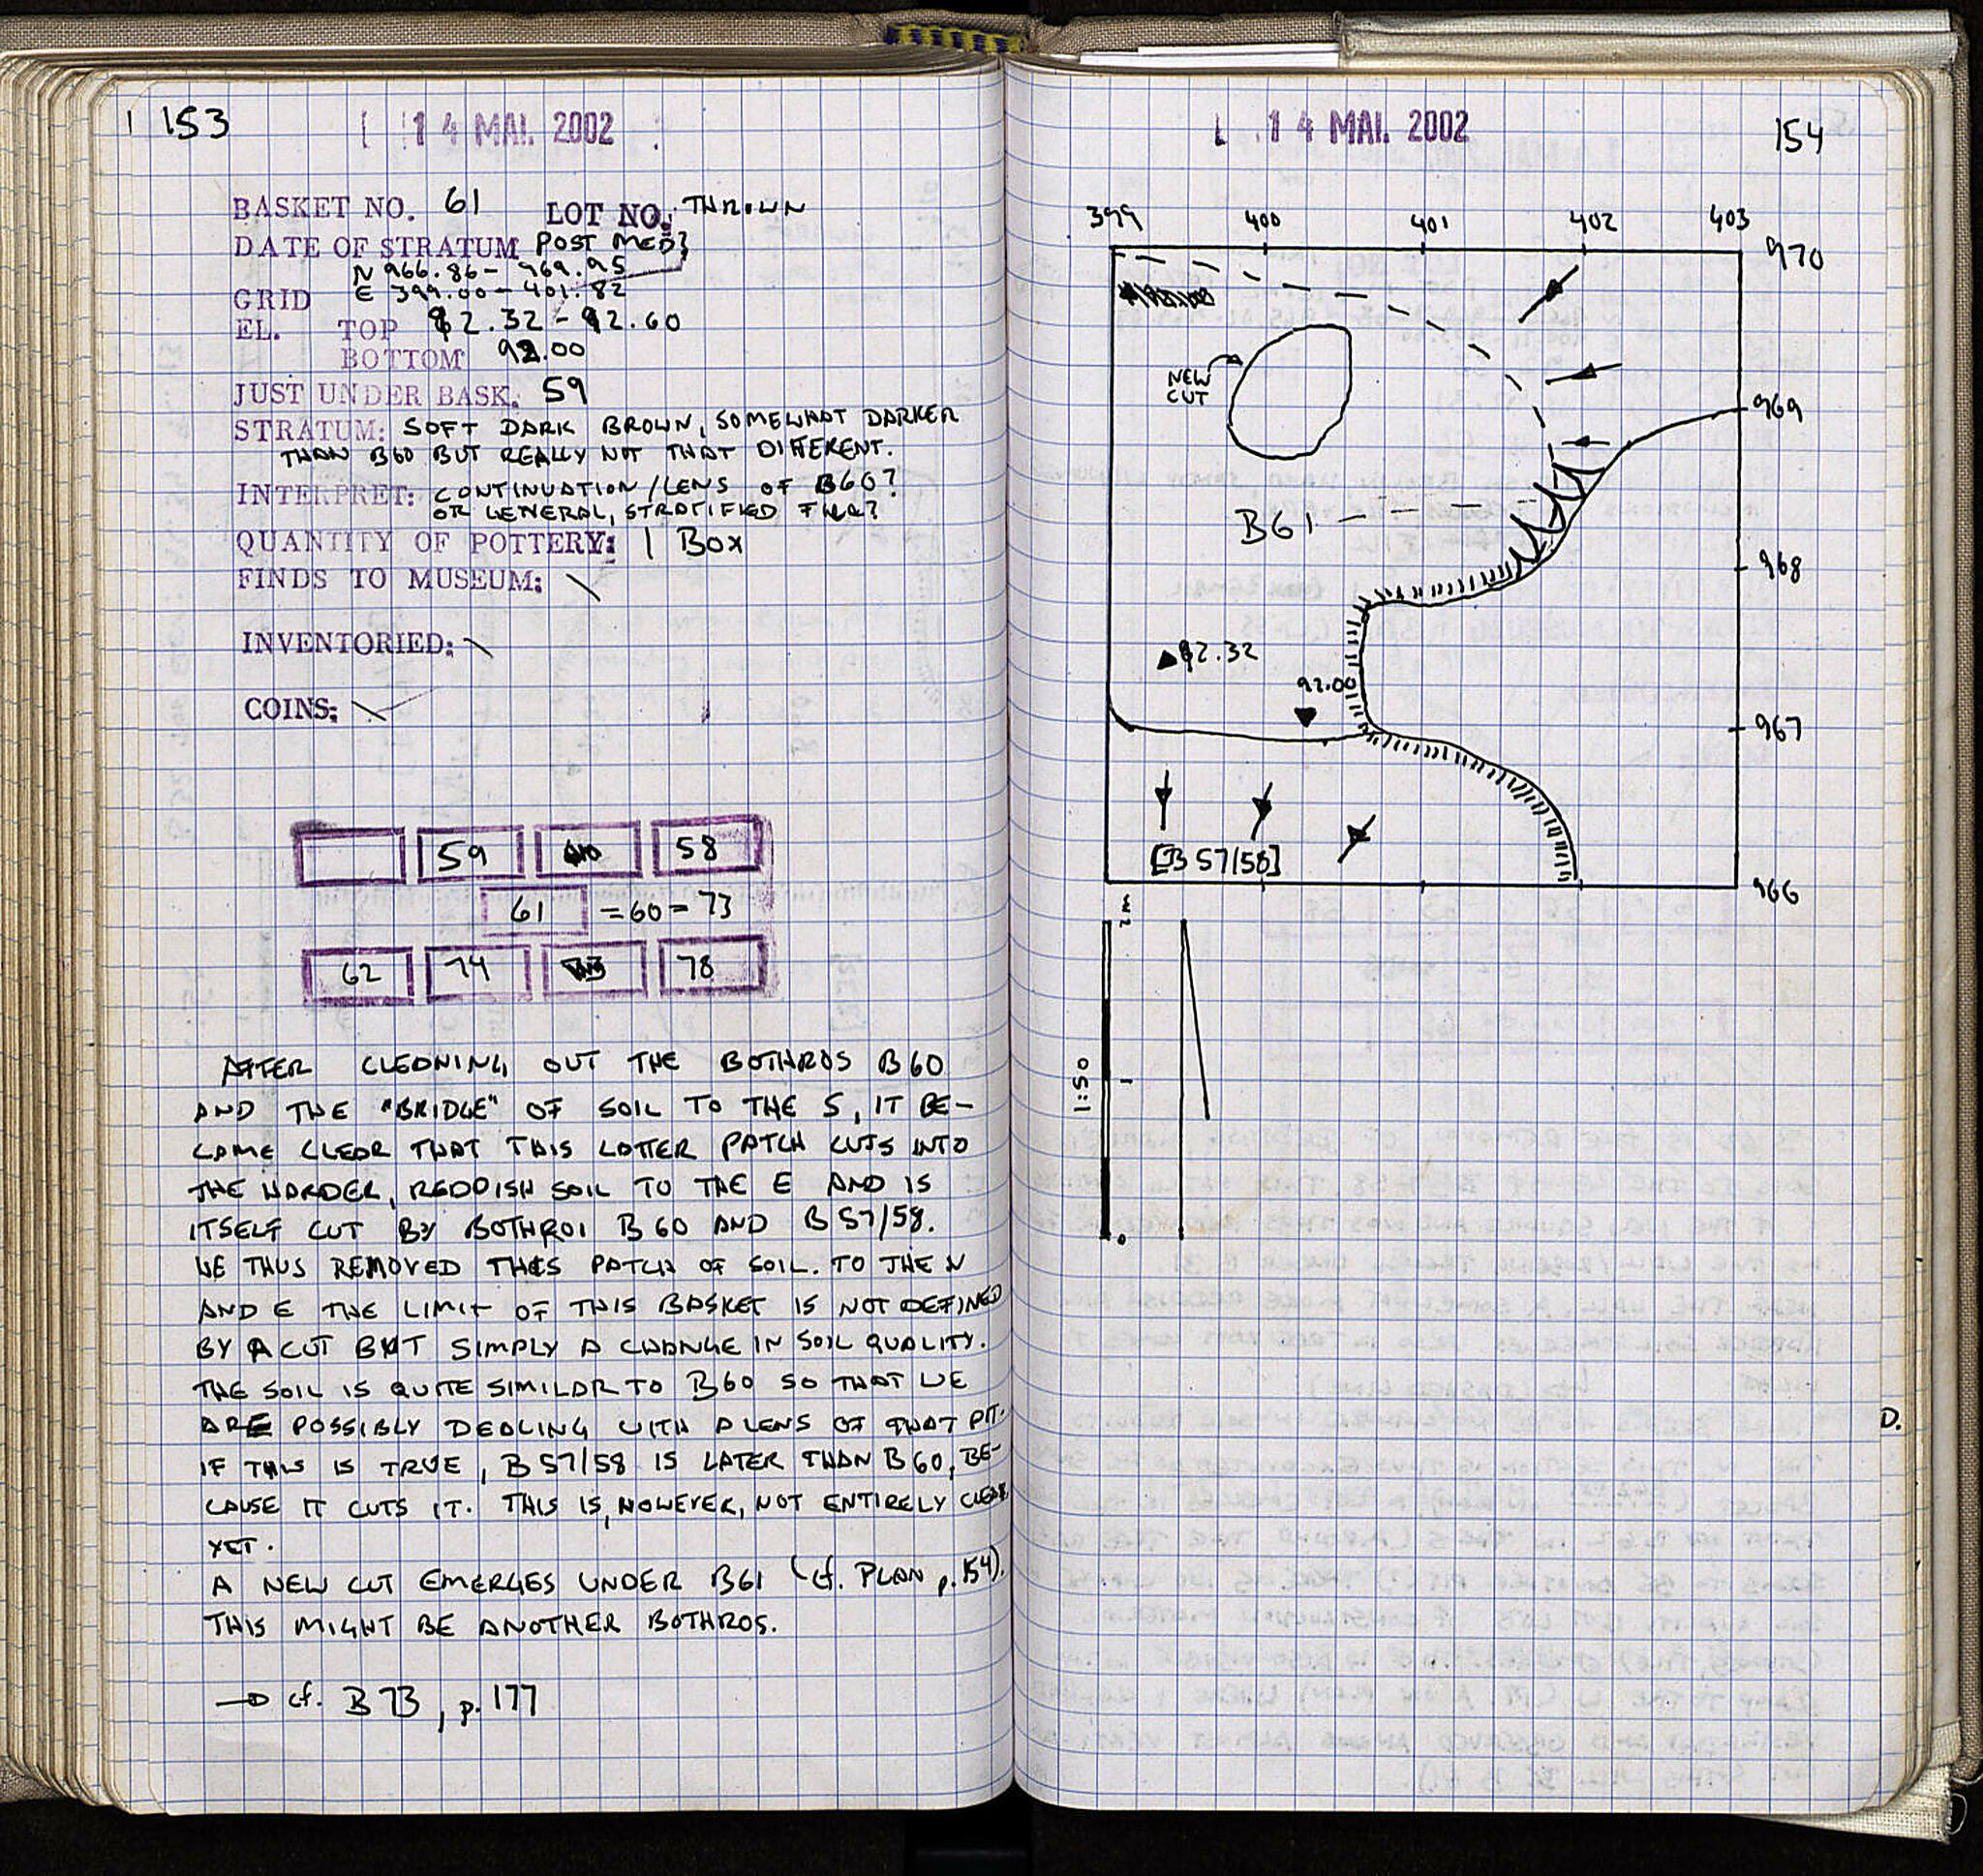 153
14 MAI. 2002
BASKET NO. 61 LOT NO. THROWN
DATE OF STRATUM POST MED?
N 966.86 - 969.95
GRID E 399.00 - 401.82
EL. TOP 92.32 - 92.60
BOTTOM 92.00
JUST UNDER BASK. 59
STRATUM: SOFT DARK BROWN, SOMEWHAT DARKER
THAN B60 BUT REALLY NOT THAT DIFFERENT.
INTERPRET: CONTINUATION/LENS OF B60?
OR GENERAL, STRATIFIED FILL?
QUANTITY OF POTTERY: 1 BOX
FINDS TO MUSEUM: \
INVENTORIED: \
COINS: \
59 58
61 = 60 = 73
62 74 78
AFTER CLEANING OUT THE BOTHROS B60
AND THE "BRIDGE" OF SOIL TO THE S, IT BE-
CAME CLEAR THAT THIS LATTER PATCH CUTS INTO
THE HARDER, REDDISH SOIL TO THE E AND IS
ITSELF CUT BY BOTHROI B60 AND B57/58.
WE THUS REMOVED THIS PATCH OF SOIL. TO THE N
AND E THE LIMIT OF THIS BASKET IS NOT DEFINED
BY A CUT BUT SIMPLY A CHANGE IN SOIL QUALITY.
THE SOIL IS QUITE SIMILAR TO B60 SO THAT WE
ARE POSSIBLY DEALING WITH A LENS OF THAT PIT.
IF THIS IS TRUE, B57/58 IS LATER THAN B60, BE-
CAUSE IT CUTS IT. THIS IS, HOWEVER, NOT ENTIRELY CLEAR
YET.
A NEW CUT EMERGES UNDER B61 (cf. PLAN p. 154).
THIS MIGHT BE ANOTHER BOTHROS.
→ cf. B73, p. 177
14 MAI. 2002
154
399 400 401 402 403
970
NEW
CUT
969
B61
968
92.32
92.00
967
[B 57/58]
966
2 m
1:50
1
0
D.